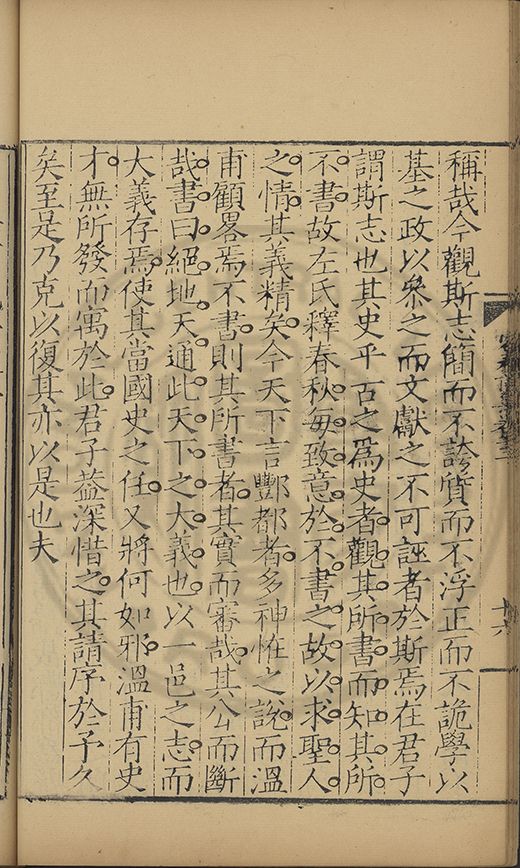 稱哉今觀斯志簡而不誇質而不浮正而不詭學以
基之政以叅之而文獻之不可誣者於斯焉在君子
謂斯志也其史乎古之爲史者觀其所書而知其所
不書故左氏釋春秋每致意於不書之故以求聖人
之情其義精矣今天下言酆都者多神恠之說而溫
甫顧畧焉不書則其所書者其實而審哉其公而斷
哉書曰絕地天通此天下之大義也以一邑之志而
大義存焉使其當國史之任又將何如邪溫甫有史
才無所發而寓於此君子葢深惜之其請序於予久
矣至是乃克以復其亦以是也夫
十六